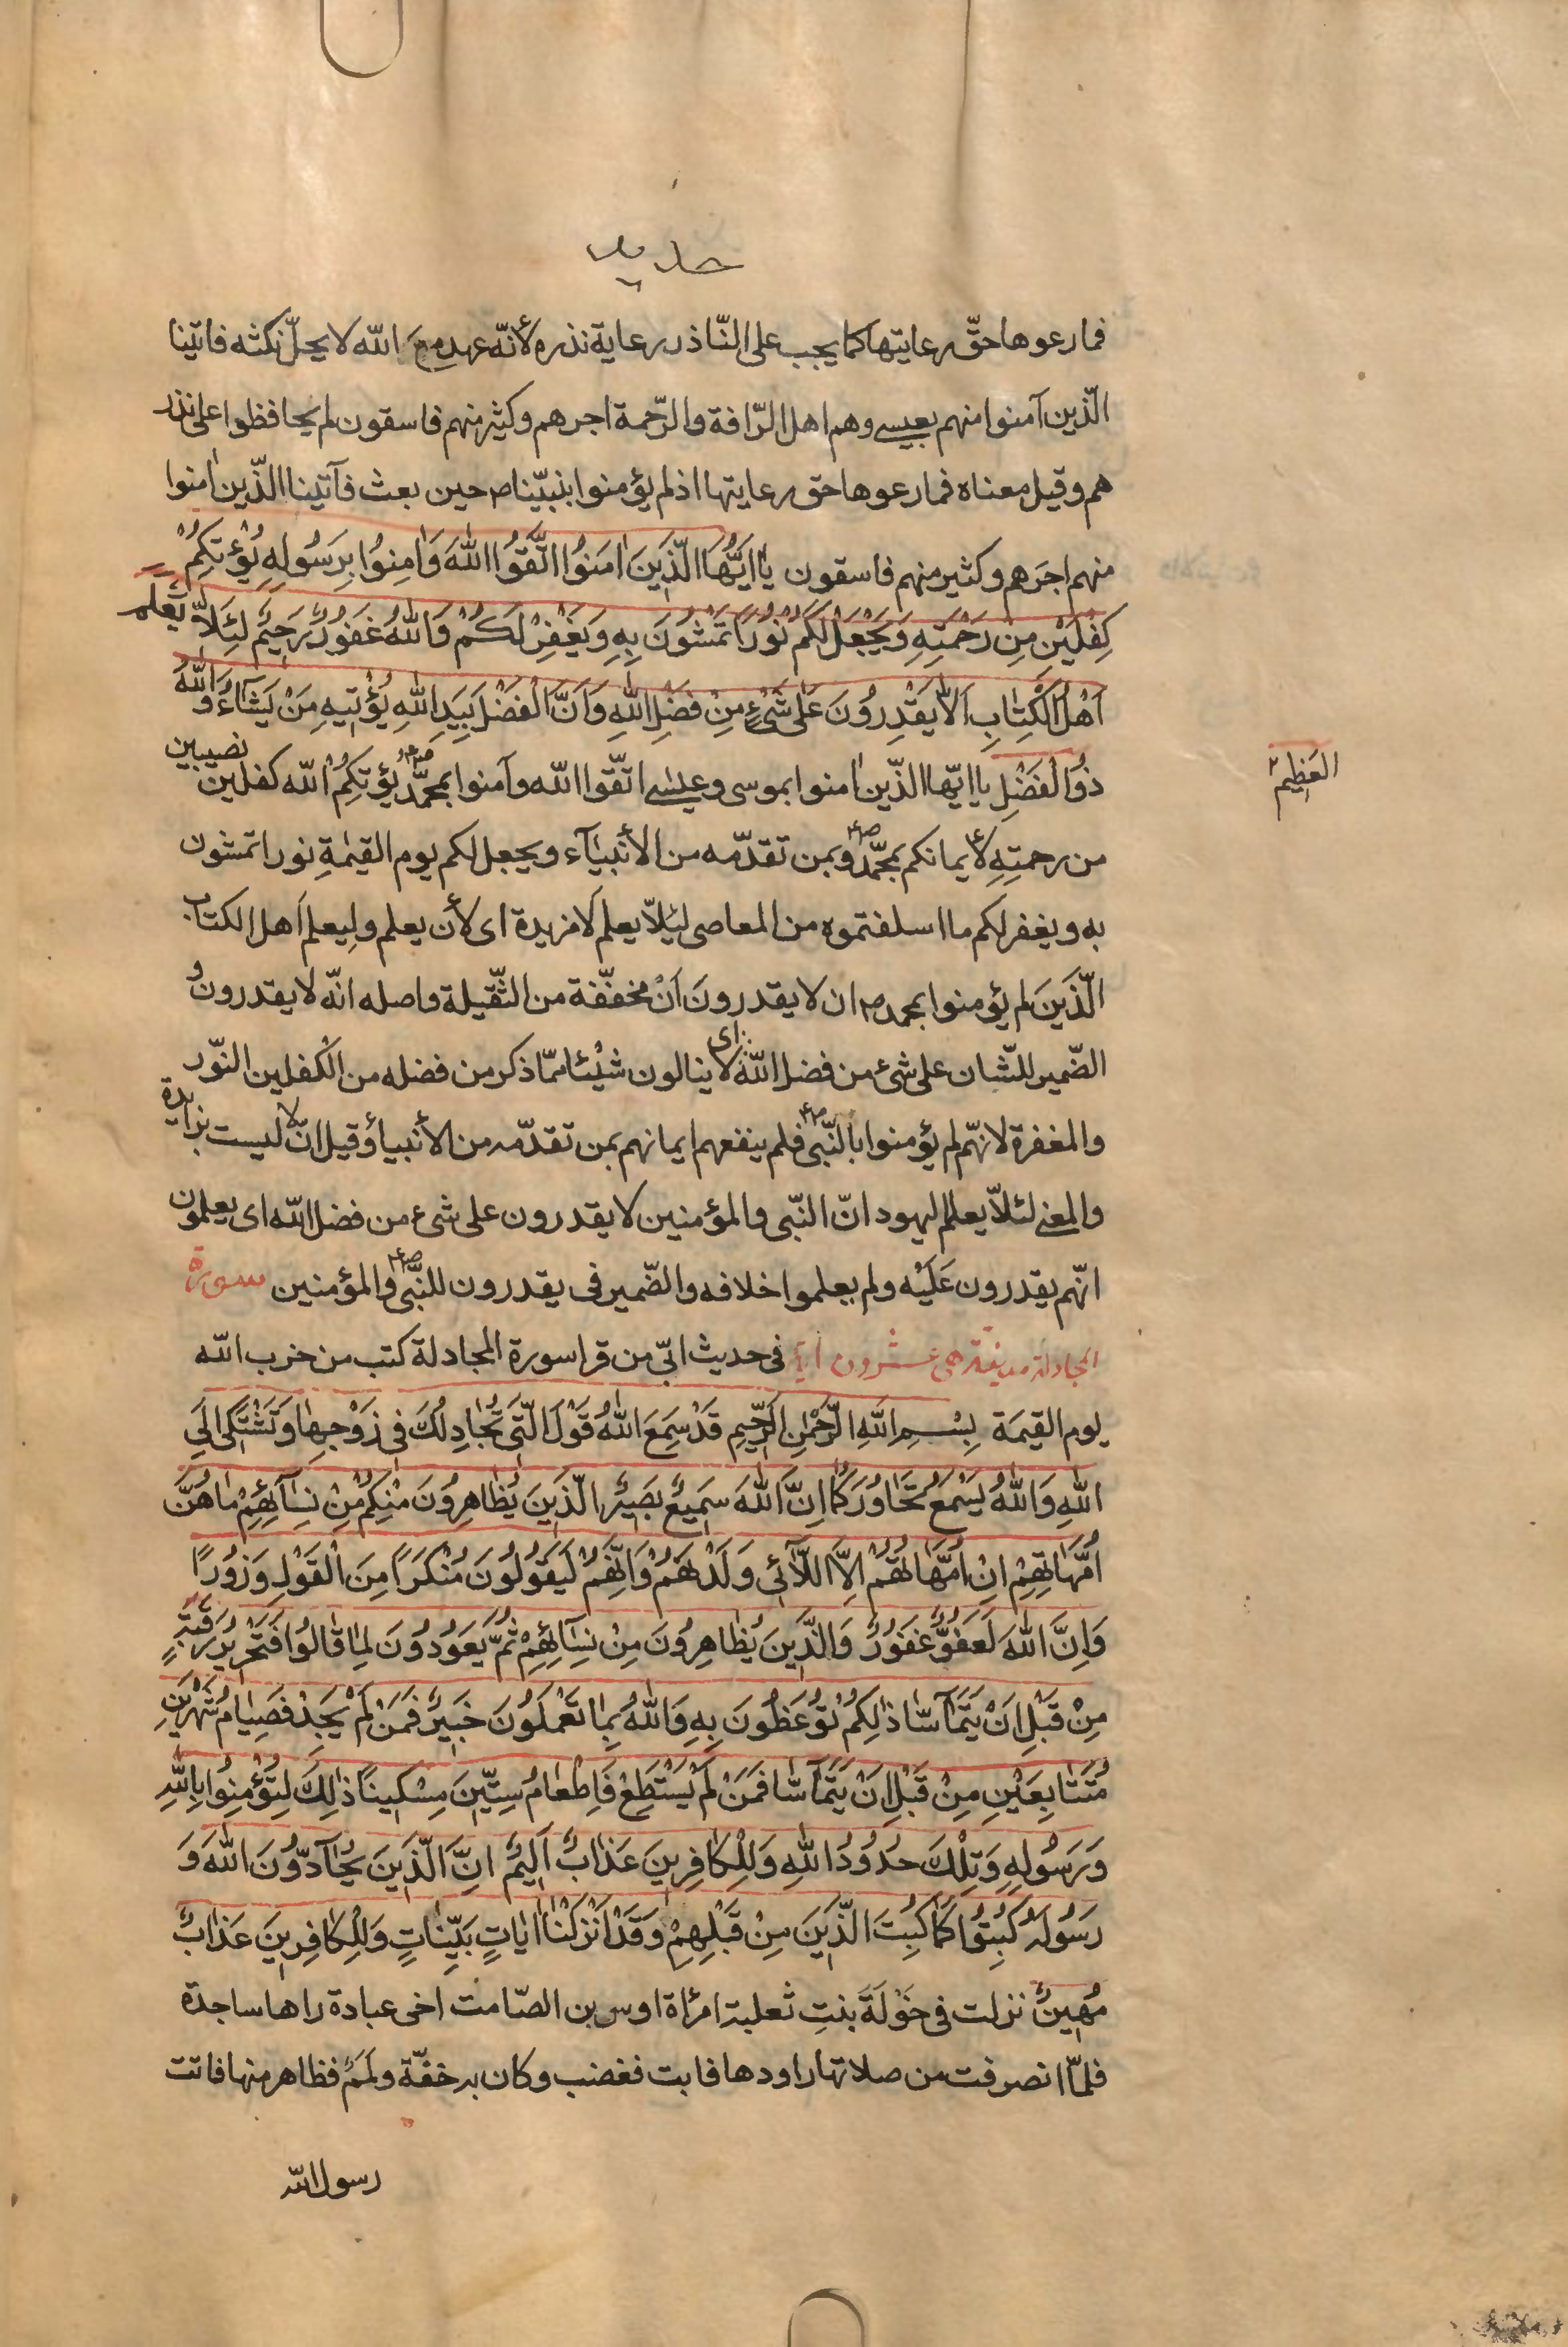 حديد
فمارعوها حقّ رعايتها كما يجب على النّاذر رعاية نذره لأنّه عهد مع الله لا يحلّ نكثه فاتينا
الّذين آمنوا منهم بعيسى وهم اهل الرّافة والرّحمة اجرهم وكثير منهم فاسقون لم يحافظوا على نذر
هم وقيل معناه فمارعوها حق رعايتها اذ لم يؤمنوا بنبيّنا ص حين بعث فآتينا الّذين امنوا
منهم اجرهم وكثير منهم فاسقون يٰا اَيُّهَا الَّذِينَ اٰمَنُوا اتَّقُوا اللّٰهَ وَاٰمِنُوا بِرَسُولِهِ يُؤْتِكُمْ
كِفْلَيْنِ مِنْ رَحْمَتِهِ وَيَجْعَلْ لَكُمْ نُورًا تَمْشُونَ بِهِ وَيَغْفِرْ لَكُمْ وَاللّٰهُ غَفُورٌ رَحِيمٌ لِئَلّاٰ يَعْلَمَ
اَهْلُ الْكِتٰابِ اَلّاٰ يَقْدِرُونَ عَلىٰ شَيْءٍ مِنْ فَضْلِ اللّٰهِ وَاَنَّ الْفَضْلَ بِيَدِ اللّٰهِ يُؤْتِيهِ مَنْ يَشٰآءُ وَاللّٰهُ
ذُو الْفَضْلِ يا ايّها الّذين اٰمنوا بموسى وعيسى اتّقوا الله وآمنوا بمحمّد صعم يؤتكم الله كفلين نصيبين
العَظِيمِ ٢
من رحمتِهِ لأيمانكم بمحمّد صعم وبمن تقدّمه من الأنبيآء ويجعل لكم يوم القيٰمةِ نورا تمشون
به ويغفر لكم ما اسلفتموه من المعاصى ليئلّا يعلم لا مزيدة اى لأن يعلم وليعلم اَهل الكتاب
الّذَينَ لم يؤمنوا بمحمد ص ان لا يقدرونَ اَنْ مخفّفة من الثّقيلة واصله انّه لا يقدرون و
الضّمير للشّان على شئ من فضل الله اى لا ينالون شيْئا ممّا ذكر من فضله من الكفلين النّور
والمغفرة لانهّم لم يؤمنوا بالنّبى صعم فلم ينفعهم ايمانهم بمن تقدّمه من الأنبياء وقيل انّ لا ليست بزايدة
والمعنى لئلّا يعلم اليهود انّ النّبى والمؤمنين لا يقدرون على شئ من فضل الله اى يعلمون
انّهم يقدرون عَلَيْه ولم يعلموا خلافه والضّمير فى يقدرون للنّبى صعم والمؤمنين سورة
المجادلة مدينة هى عشرون اية فى حديث ابّى من قرا سورة المجادلة كتب من حزب الله
يوم القيمة بِسْمِ اللّٰهِ الرَّحْمٰنِ الرَّحِيمِ قَدْ سَمِعَ اللّٰهُ قَوْلَ الَّتِى تُجٰادِلُكَ فِى زَوْجِهٰا وَتَشْتَكِى اِلَى
اللّٰهِ وَاللّٰهُ يَسْمَعُ تَحٰاوُرَكُمٰا اِنَّ اللّٰهَ سَمِيعٌ بَصِيرٌ الَّذِينَ يُظٰاهِرُونَ مِنْكُمْ مِنْ نِسٰآئِهِمْ مٰا هُنَّ
اُمَّهٰاتِهِمْ اِنْ اُمَّهٰاتُهُمْ اِلَّا اللّٰآئِى وَلَدْنَهُمْ وَاِنَّهُمْ لَيَقُولُونَ مُنْكَرًا مِنَ الْقَوْلِ وَزُورًا
وَاِنَّ اللّٰهَ لَعَفُوٌّ غَفُورٌ وَالَّذِينَ يُظٰاهِرُونَ مِنْ نِسٰآئِهِمْ ثُمَّ يَعُودُونَ لِمٰا قٰالُوا فَتَحْرِيرُ رَقَبَةٍ
مِنْ قَبْلِ اَنْ يَتَمٰآسّٰا ذٰلِكُمْ تُوعَظُونَ بِهِ وَاللّٰهُ بِمٰا تَعْمَلُونَ خَبِيرٌ فَمَنْ لَمْ يَجِدْ فَصِيٰامُ شَهْرَيْنِ
مُتَتٰابِعَيْنِ مِنْ قَبْلِ اَنْ يَتَمٰآسّٰا فَمَنْ لَمْ يَسْتَطِعْ فَاِطْعٰامُ سِتِّينَ مِسْكِينًا ذٰلِكَ لِتُؤْمِنُوا بِاللّٰهِ
وَرَسُولِهِ وَتِلْكَ حُدُودُ اللّٰهِ وَلِلْكٰافِرِينَ عَذٰابٌ اَلِيمٌ اِنَّ الَّذِينَ يُحٰآدُّونَ اللّٰهَ وَ
رَسُولَهُ كُبِتُوا كَمٰا كُبِتَ الَّذِينَ مِنْ قَبْلِهِمْ وَقَدْ اَنْزَلْنٰا اٰيٰاتٍ بَيِّنٰاتٍ وَلِلْكٰافِرِينَ عَذٰابٌ
مُهِينٌ نزلت فى خَوْلَةَ بنتِ ثعلبة امرٔاة اوس بن الصّامت اخى عبادة راها ساجدة
فلمّا انصرفت من صلاتها راودها فابت فغضب وكان به خفّة ولمم فظاهر منها فاتت
رسول الله